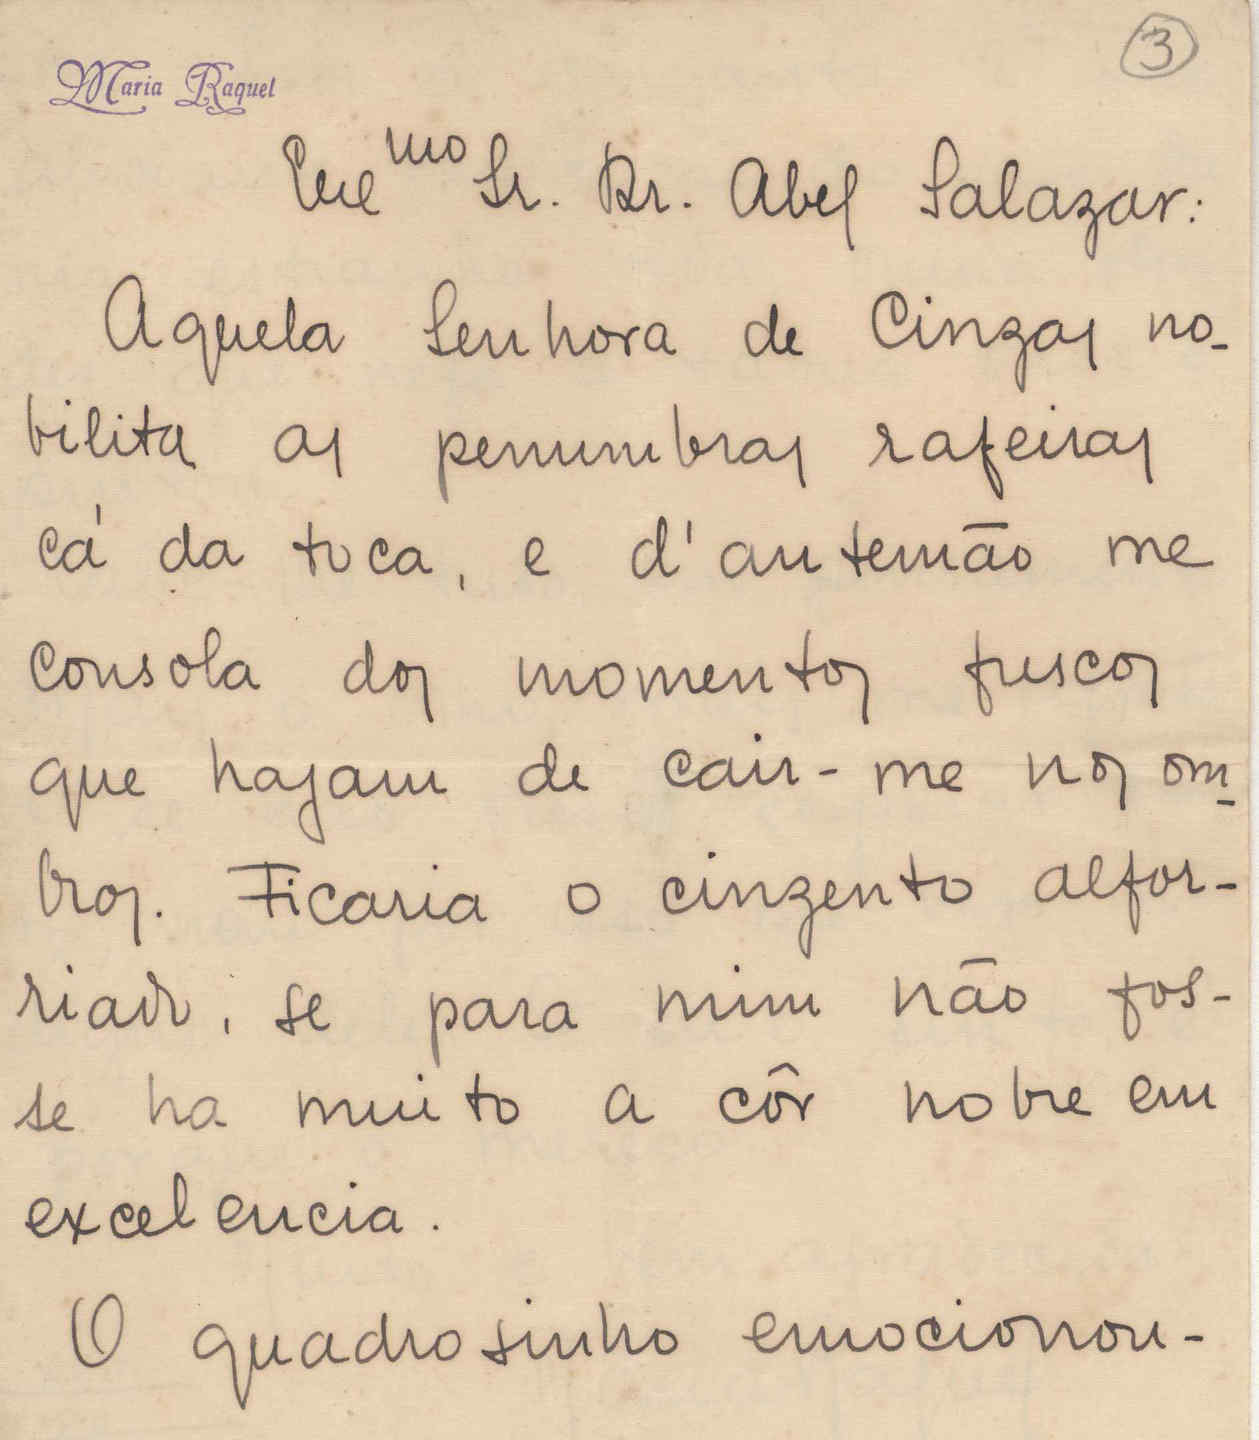 3
Maria Raquel
Exe mo Sr. Dr. Abel Salazar:
Aquela Senhora de Cinzas no-
bilita as penumbras rafeiras
cá da toca, e d'antemão me
consola dos momentos fuscos
que hajam de cair-me nos om-
bros. Ficaria o cinzento alfor-
riado, se para mim não fos-
se ha muito a côr nobre em
excelencia.
O quadrosinho emocionou-